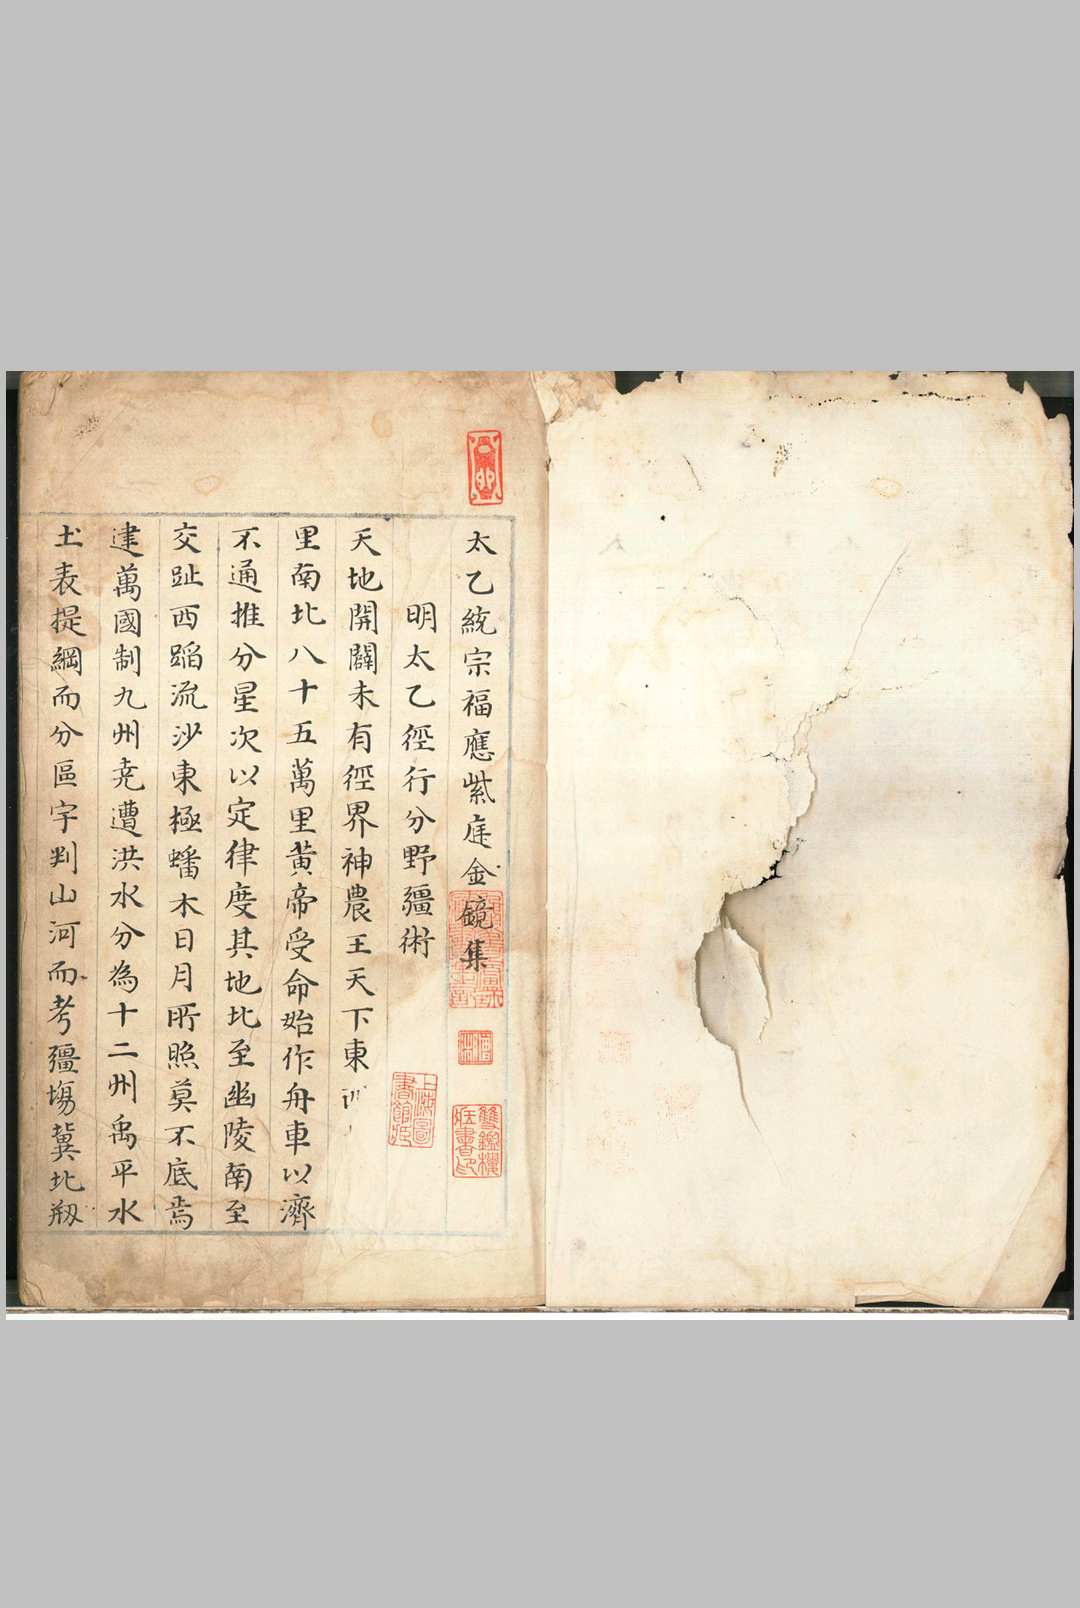 太乙統宗福應紫庭金鏡集
明太乙徑行分野疆術
天地開闢未有徑界神農王天下東
里南北八十五萬里黃帝受命始作舟車以濟
不通推分星次以定律度其地北至幽陵南至
交趾西蹈流沙東極蟠木日月所照莫不底焉
建萬國制九州堯遭洪水分為十二州禹平水
土表提綱而分區宇判山河而考疆埸冀北
上海圖
書館藏
雙鑑樓
藏書印